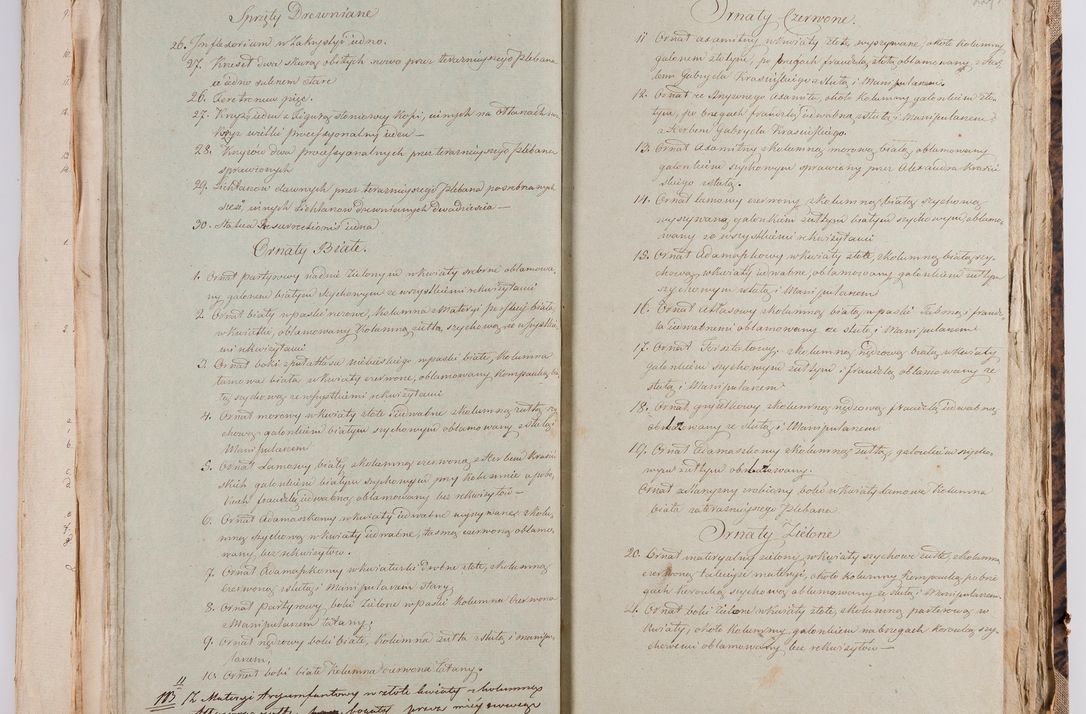 Sprzęty Drewniane
26. Inflesorium w Zakrystyi iedno.
27. Krzeseł dwa skurą obitych nowo przez teraznieyszego Plebana
ie iedno suknem stare
26. Fere trenow pięc.
27. Krzyż ieden z Figurą słoniowey Kości, innych na ołtarzach
Krzyz wielki processyonalny ieden —
28. Krzyzow dwa processyonalnych przez teraznieyszego Plebana
sprawionych
29. Lichtarzow dawnych przez teraznieyszego Plebana posrebrzanych
sześć, innych Lichtarzow drewnianych dwadziescia —
30. Statua Resurrectionis iedna
Ornaty Białe.
1. Ornat partyrowy na dnie zielonym w kwiaty srebrne oblamowa
ny galonem białym szychowym ze wszystkiemi rekwizytami
2. Ornat biały w paski rozowe, kolumna z Materyi perskiey biała
w kwiatki, oblamowany Koronką zułtą szychową ze wszystkie
mi rekwizytami
3. Ornat boki z pułatłasu niebieskiego w paski białe, kolumna
tamowa biała w kwiaty czerwone, oblamowany kompanką bia
łą szychową ze wszystkiemi rekwizytami
4. Ornat morowy w kwiaty złote i iedwabne z kolumną zułtą szy
chową galonkiem białym szychowym oblamowany z stułą i
Manipularzem
5. Ornat Lamowy biały z kolumną czerwoną z Herbem Krasin
skich galonkiem białym szychowym przy kolumnie a po bo
kach frandzlą iedwabną oblamowany bez rekwizytow —
6. Ornat Adamaszkowy w kwiaty iedwabne wyszywane z kolu
mną szychową w kwiaty iedwabne, tasmą czerwoną oblamo
wany, bez rekwizytow.
7. Ornat Adamaszkowy w kwiateczki drobne złote, z kolumną
czerwoną z stułą i Manipularzem Stary
8. Ornat Partyrowy boki Zielone w paski kolumna czerwona
z Manipularzem łatany.
9. Ornat nędzowy boki białe, kolumna zułta z stułą i manipu
larzem,
10. Ornat boki białe kolumna czerwona łatany.
11
113 / Z Materyi tryumfantowey w złote kwiaty z kolumną
Ornaty Czerwone.
11 Ornat axamitny w kwiaty złote wyszywane, około kolumny
galonem złotym, po brzegach frandzlą złotą oblamowany z Her
bem Gabryela Krasinskiego z stułą i Manipularzem.
12. Ornat ze Strysonego axamitu, około kolumny galonkiem zło
tym, po brzegach frandzlą iedwabną z stułą i Manipularzem
z Herbem Gabryela Krasinskiego.
13. Ornat axamitny z kolumną morową białą, oblamowany
galonkiem szychowym sprawiony przez Alexandra Krasin
skiego z stułą.
14. Ornat lamowy czerwony z kolumną białą szychową
wyszywaną galonkiem zułtym białym szychowym oblamo
wany ze wszystkiemi rekwizytami
15. Ornat Adamaszkowy w kwiaty złote, z kolumną białą szy
chową, w kwiaty iedwabne, oblamowany galonkiem zułtym
szychowym z stułą i Manipularzem
16. Ornat Atłasowy z kolumną białą w paski zielone, frandz
lą iedwabnem oblamowany ze stułą i Manipularzem
17. Ornat Tersztatowy, z kolumną nędzową białą w kwiaty
galonkiem szychowym zułtym i frandzlą oblamowany ze
stułą i Manipularzem
18. Ornat grysetkowy z kolumną nędzową frandzlą iedwabną
oblamowany ze stułą i Manipularzem
19. Ornat Adamaszkowy z kolumną zułtą, galonkiem szycho
wym zułtym oblamowany.
Ornat zeszarzany zrobiony boki w kwiaty lamowe kolumna
biała za teraznieyszego Plebana
Ornaty Zielone
20. Ornat materyalny zielony, w kwiaty szychowe zułte, z kolumną
czerwoną takieyze materyi, około kolumny kompanką po brze
gach koronką szychową oblamowany ze stułą i Manipularzem.
21. Ornat boki zielone w kwiaty złote, z kolumną parterową w
kwiaty, około kolumny galonkiem na brzegach koronką szy
chowemi oblamowany bez rekwizytow —